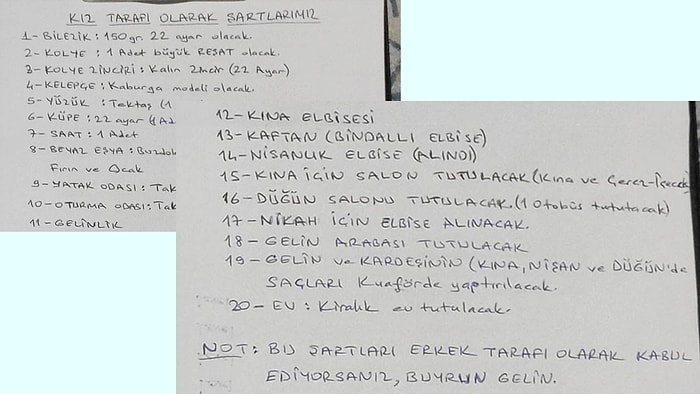 KIZ TARAFI OLARAK ŞARTLARIMIZ
1- BİLEZİK : 150 gr. 22 ayar olacak.
2- KOLYE : 1 Adet büyük REŞAT olacak.
3- KOLYE ZİNCİRİ : Kalın Zincir (22 Ayar)
4- KELEPÇE : Kaburga modeli olacak.
5- YÜZÜK : Tektaş (1
6- KÜPE : 22 ayar (1 Ad
7- SAAT : 1 Adet
8- BEYAZ EŞYA : Buzdol
Fırın ve Ocak
9- YATAK ODASI : Tak
10- OTURMA ODASI : Tak
11- GELİNLİK
12- KINA ELBİSESİ
13- KAFTAN (BİNDALLI ELBİSE)
14- NİŞANLIK ELBİSE (ALINDI)
15- KINA İÇİN SALON TUTULACAK (Kına ve Çerez-İçecek)
16- DÜĞÜN SALONU TUTULACAK. (1 Otobüs tutulacak)
17- NİKAH İÇİN ELBİSE ALINACAK.
18- GELİN ARABASI TUTULACAK
19- GELİN ve KARDEŞİNİN (KINA, NİŞAN ve DÜĞÜN'de
SAÇLARI Kuaförde yaptırılacak.
20- EV : Kiralık ev tutulacak.
NOT : BU ŞARTLARI ERKEK TARAFI OLARAK KABUL
EDİYORSANIZ, BUYRUN GELİN.